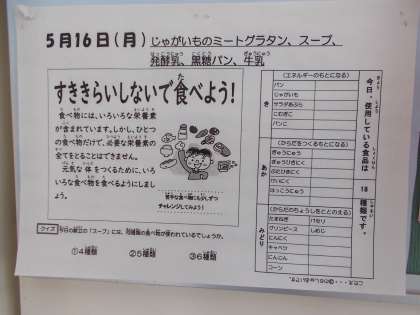 5月16日(月) じゃがいものミートグラタン、スープ、
発酵乳、黒糖パン、牛乳
はっこうにゅう こくとう ぎゅうにゅう
すききらいしないで食べよう!
食べ物には、いろいろな栄養素
が含まれています。しかし、ひとつ
の食べ物だけで、必要な栄養素の
全てをとることはできません。
元気な体をつくるために、いろ
いろな食べ物を食べるようにしまし
ょう。
苦手な食べ物にも少しずつ
チャレンジしてみよう!
クイズ 今日の献立の「スープ」には、何種類の食べ物が使われているでしょうか。
①4種類 ②5種類 ③6種類
今日、使用している食品は 18 種類です。
き
(エネルギーのもとになる)
パン
じゃがいも
サラダあぶら
こむぎこ
パンこ
あか
(からだをつくるもとになる)
ぎゅうにゅう
ぎゅうひきにく
ぶたひきにく
とりにく
はっこうにゅう
みどり
(からだのちょうしをととのえる)
たまねぎ パセリ
グリンピース しめじ
にんにく
キャベツ
にんじん
コーン